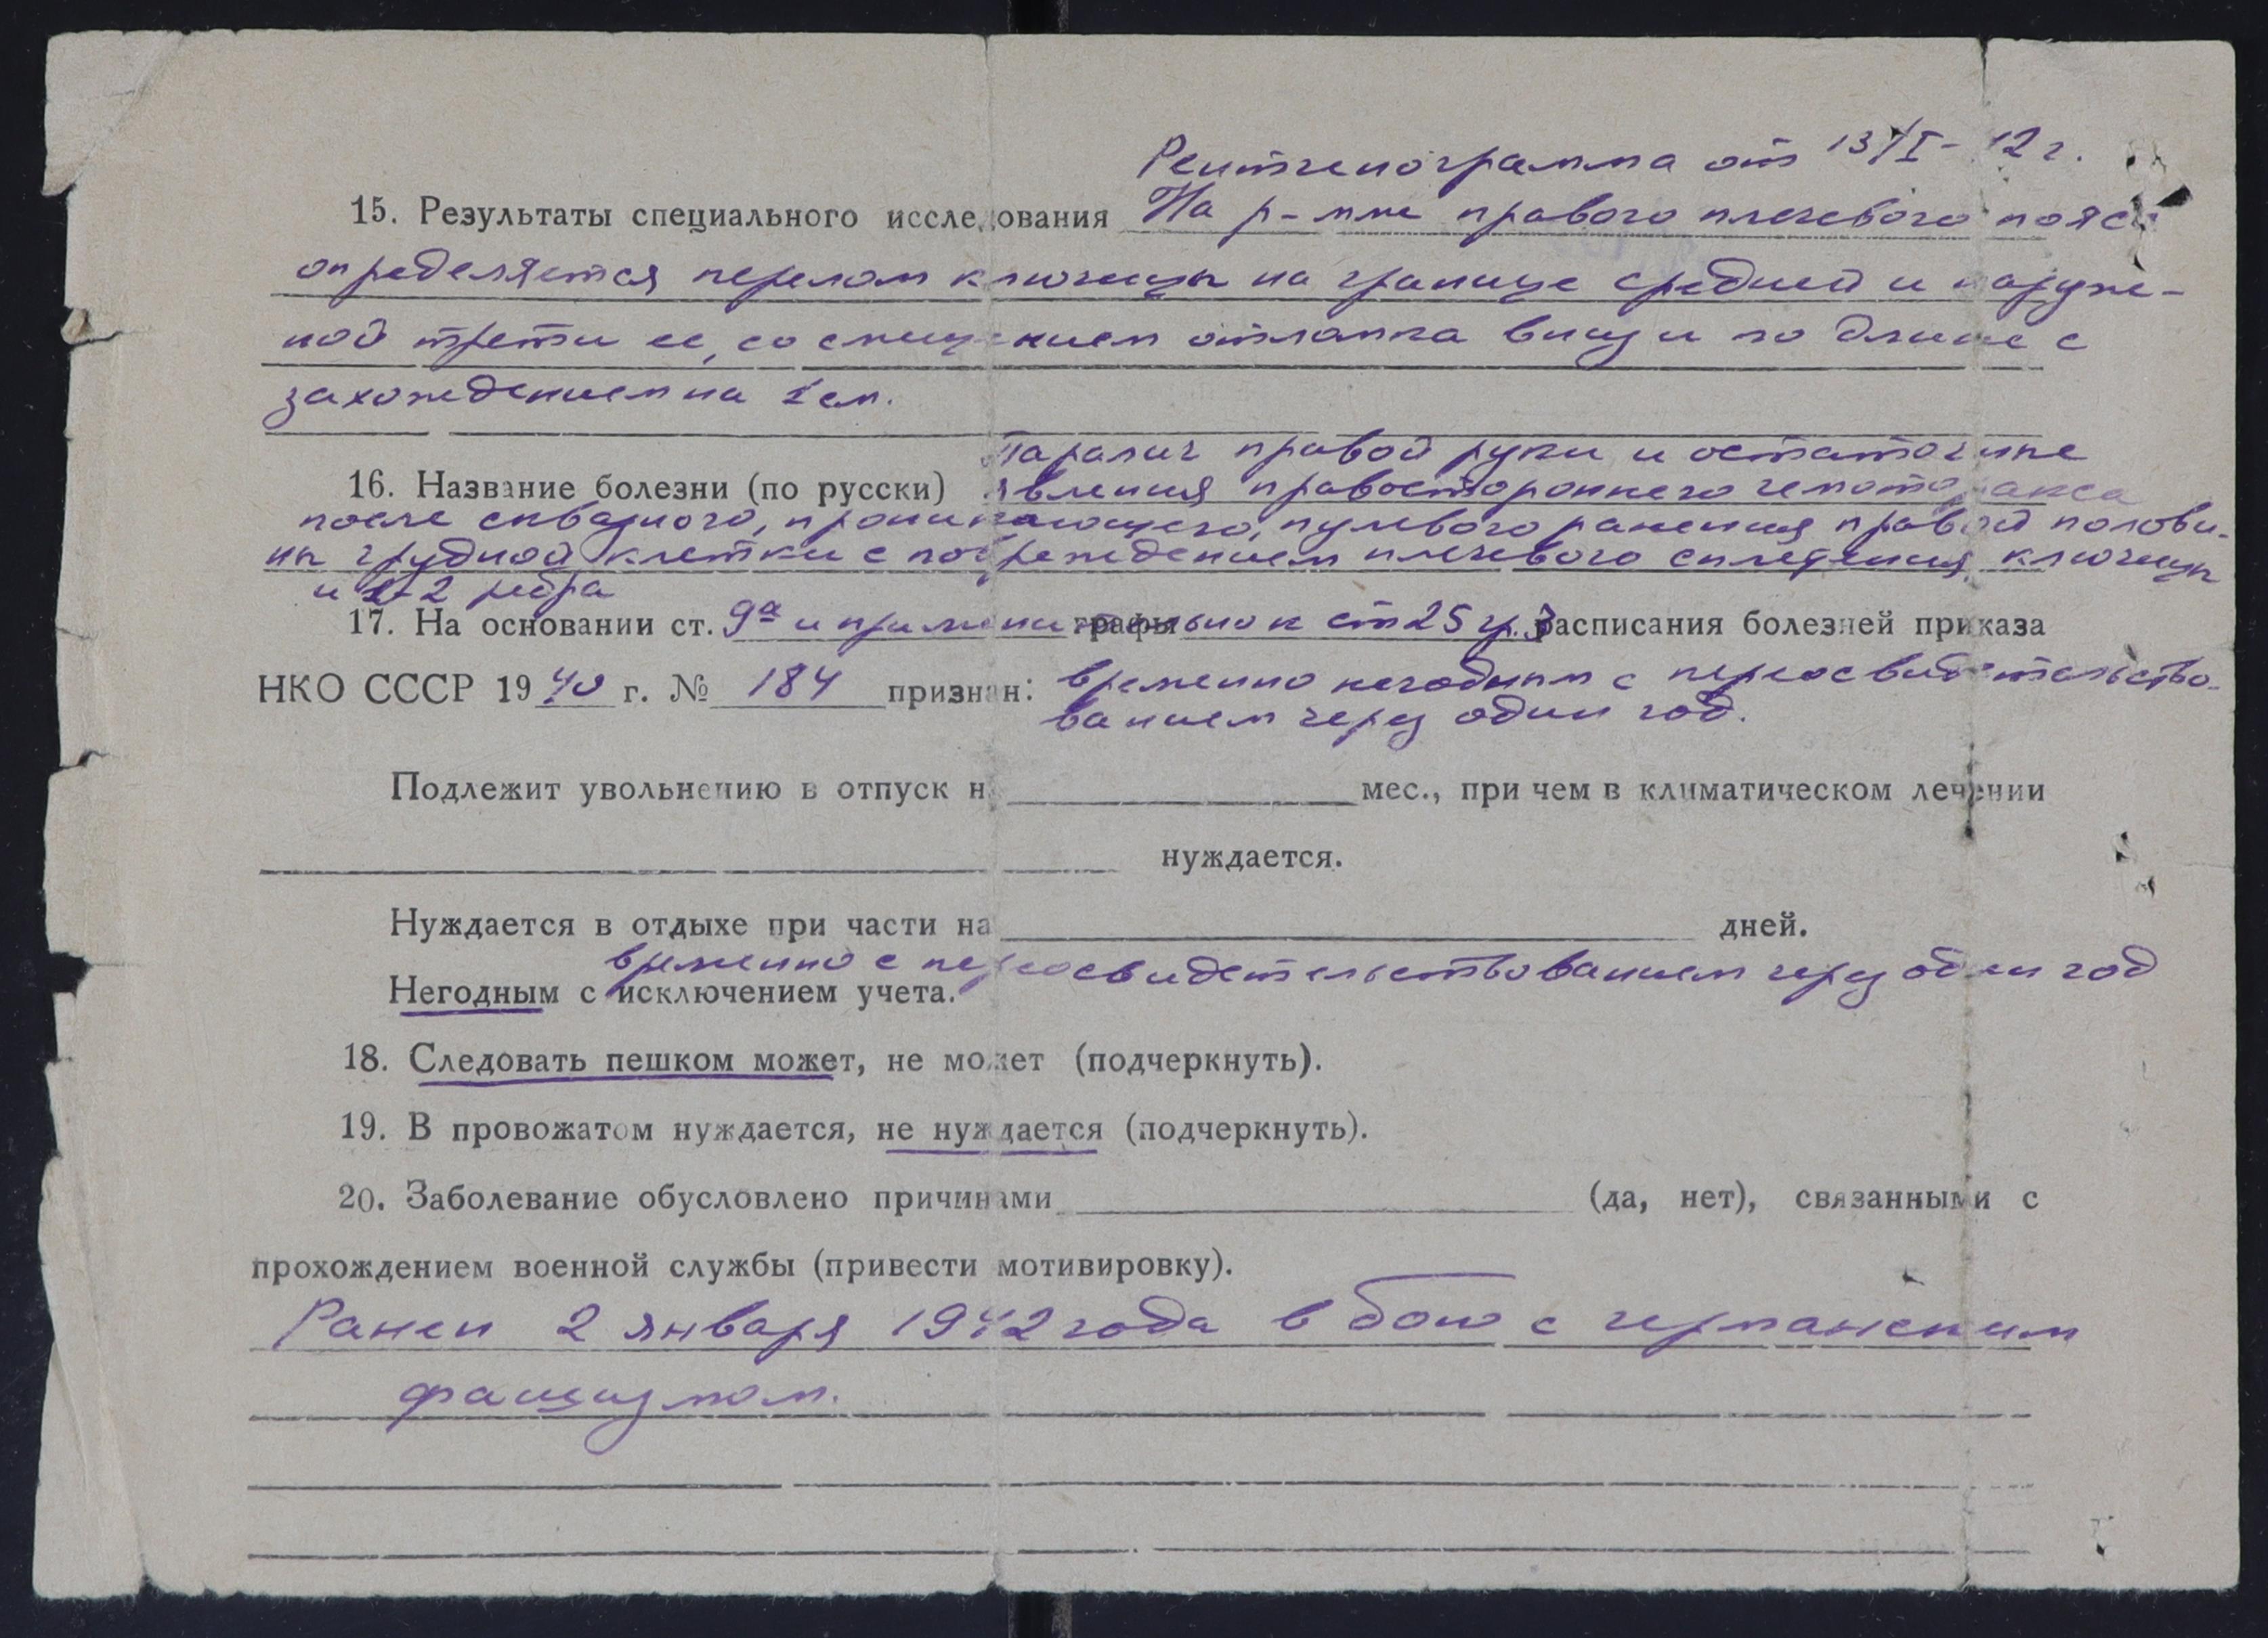 Рентгенограмма от 13/I - 42 г.
15. Результаты специального исследования На р-мме правого плечевого пояса
определяется перелом ключицы на границе средней и наруж-
ной трети ее, со смещением отломка вниз и по длине с
захождением на 1 см.
Паралич правой руки и остаточные
16. Название болезни (по русски) явления правостороннего гемоторакса
после сквозного, проникающего, пулевого ранения правой полови-
ны грудной клетки с повреждением плечевого сплетения, ключицы
и 1-2 ребра
17. На основании ст. 9а и применительно к ст 25 гр. 3 графы расписания болезней приказа
НКО СССР 1940 г. № 184 признан: временно негодным с переосвидетельство-
ванием через один год.
Подлежит увольнению в отпуск на мес., при чем в климатическом лечении
нуждается.
Нуждается в отдыхе при части на дней.
временно с переосвидетельствованием через один год
Негодным с исключением учета.
18. Следовать пешком может, не может (подчеркнуть).
19. В провожатом нуждается, не нуждается (подчеркнуть).
20. Заболевание обусловлено причинами (да, нет), связанными с
прохождением военной службы (привести мотивировку).
Ранен 2 января 1942 года в бою с германским
фашизмом.